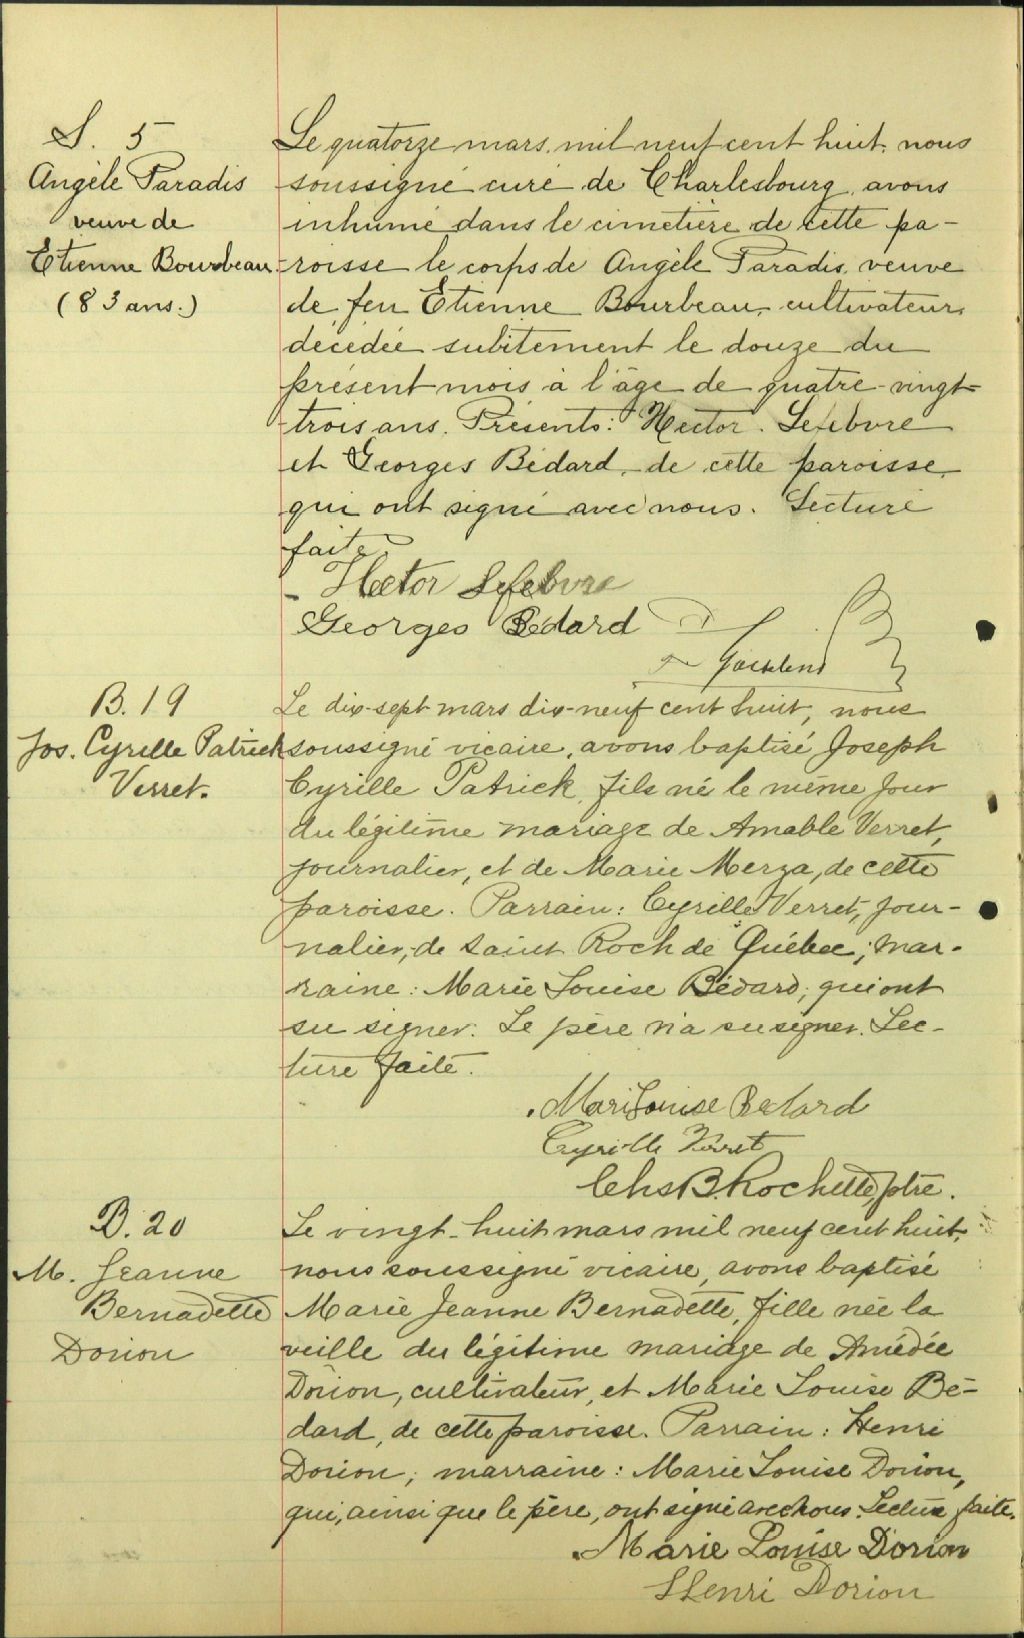 S. 5
Angèle Paradis
veuve de
Etienne Bourbeau
(83 ans.)
Le quatorze mars mil neuf cent huit, nous
soussigné curé de Charlesbourg, avons
inhumé dans le cimetière de cette pa-
roisse le corps de Angèle Paradis, veuve
de feu Etienne Bourbeau, cultivateur,
décédée subitement le douze du
présent mois à l'âge de quatre-vingt-
trois ans. Présents: Hector Lefebvre
et Georges Bédard, de cette paroisse,
qui ont signé avec nous. Lecture
faite.
Hector Lefebvre
Georges Bédard
B. 19
Jos. Cyrille Patrick
Verret.
Le dix-sept mars dix-neuf cent huit, nous
soussigné vicaire, avons baptisé Joseph
Cyrille Patrick, fils né le même jour
du légitime mariage de Amable Verret,
journalier, et de Marie Merza, de cette
paroisse. Parrain: Cyrille Verret, jour-
nalier, de Saint Roch de Québec; mar-
raine: Marie Louise Bédard, qui ont
su signer. Le père n'a su signer. Lec-
ture faite.
Mari Louise Bedard
Cyrille Verret
Chs B. Rochette, ptre.
B. 20
M. Jeanne
Bernadette
Dorion
Le vingt-huit mars mil neuf cent huit,
nous soussigné vicaire, avons baptisé
Marie Jeanne Bernadette, fille née la
veille du légitime mariage de Amédée
Dorion, cultivateur, et Marie Louise Bé-
dard, de cette paroisse. Parrain: Henri
Dorion; marraine: Marie Louise Dorion,
qui, ainsi que le père, ont signé avec nous. Lecture faite.
Marie Louise Dorion
Henri Dorion